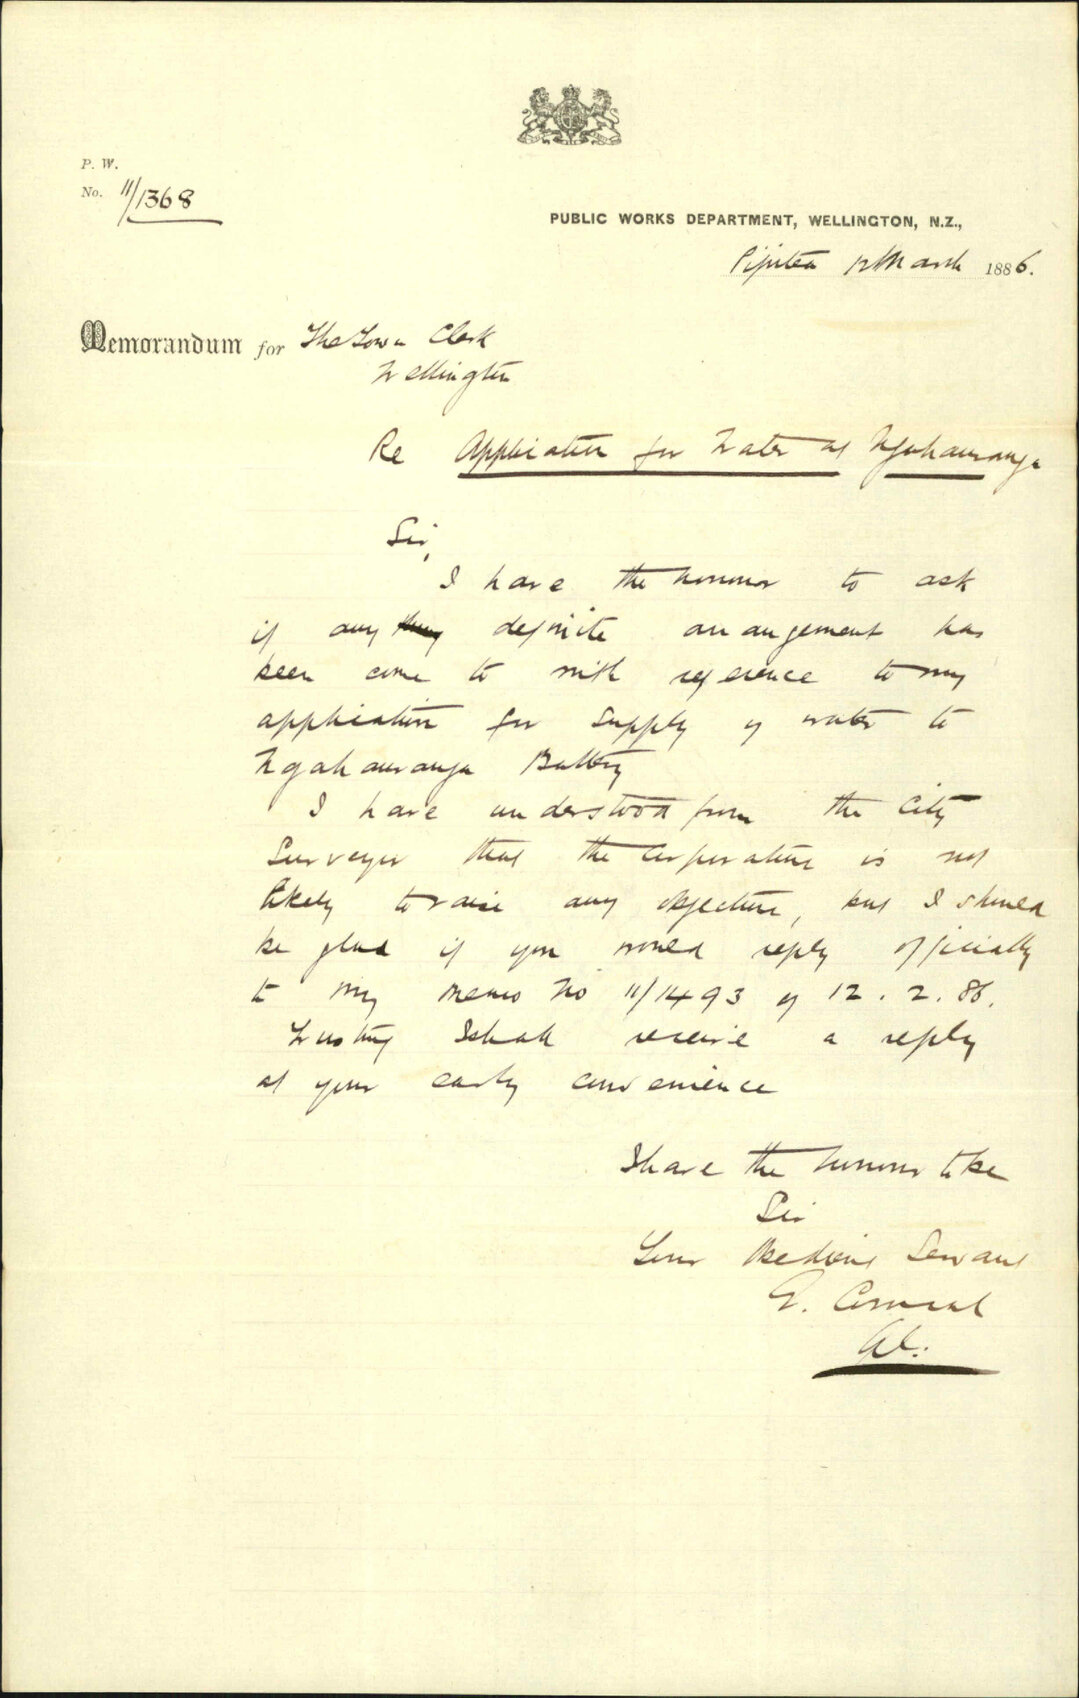 P. W.
No. 11/1368
PUBLIC WORKS DEPARTMENT, WELLINGTON, N.Z.,
Pipitea 12 March 1886.
Memorandum for The Town Clerk
Wellington
Re Application for Water at Ngahauranga
Sir,
I have the honour to ask
if any thing definite arrangement has
been come to with reference to my
application for supply of water to
Ngahauranga Battery
I have understood from the City
Surveyor that the Corporation is not
likely to raise any objection, but I should
be glad if you would reply officially
to my memo No 11/1493 of 12.2.86.
Trusting I shall receive a reply
at your early convenience
I have the honour to be
Sir
Your Obedient Servant